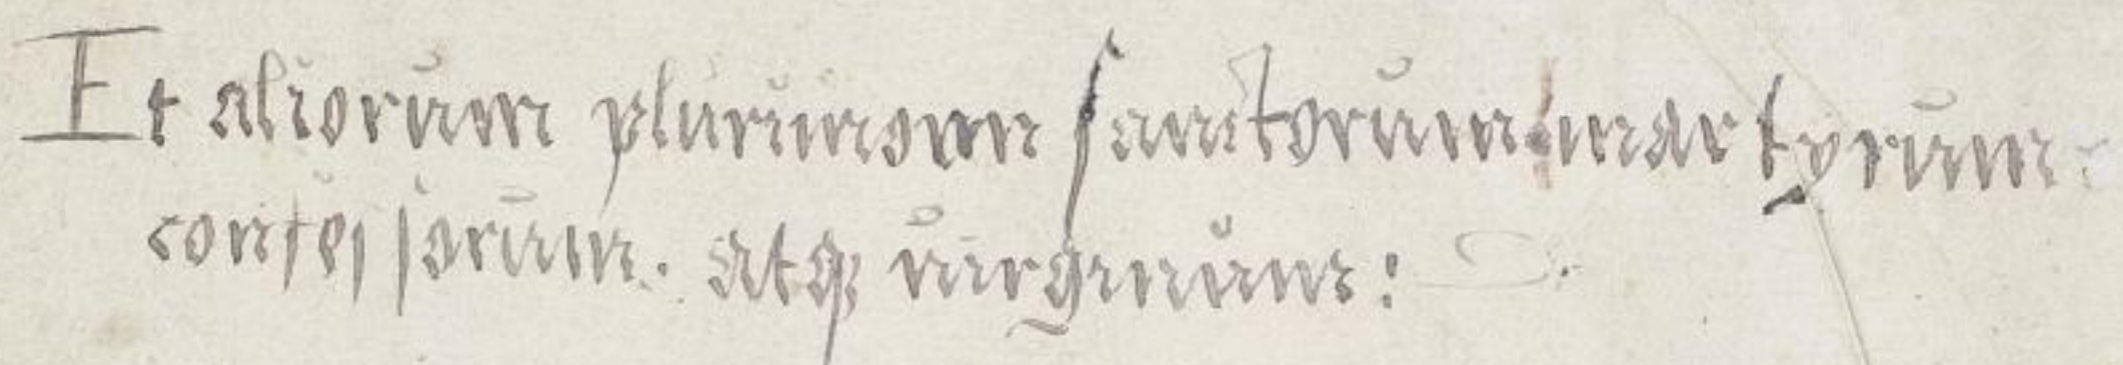 Et aliorum plurimorum sanctorum martyrum.
confessorum. atq; uirginum: